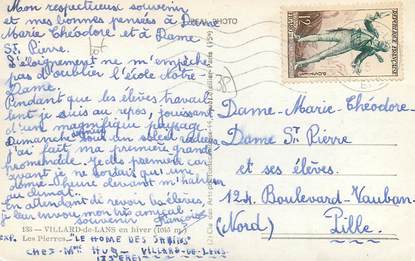 Mon respectueux souvenir
et mes bonnes pensées à Dame
Marie Théodore et à Dame
St. Pierre.
L'éloignement ne m'empêche
pas d'oublier l'École Notre-
Dame.
Pendant que les élèves travail-
lent je suis au repos, jouissant
d'un magnifique paysage.
Dimanche dernier sous un soleil radieux
j'ai fait ma première grande
promenade. Je dis première car
avant je ne sortais que une
demi-heure devant m'habituer
au climat.
En attendant de revoir les élèves
je leur envoie mon très amical
souvenir François
PHOTO
RÉPUBLIQUE FRANÇAISE
POSTES
12F
Dame-Marie-Théodore-
Dame St. Pierre
et ses élèves.
124 Boulevard-Vauban-
Lille.
(Nord)
135 - VILLARD-de-LANS en hiver (1045 m)
Les Pierres
EXP. "LE HOME DES SAPINS"
CHEZ Mme HUG - VILLARD-DE-LANS-
ISÈRE